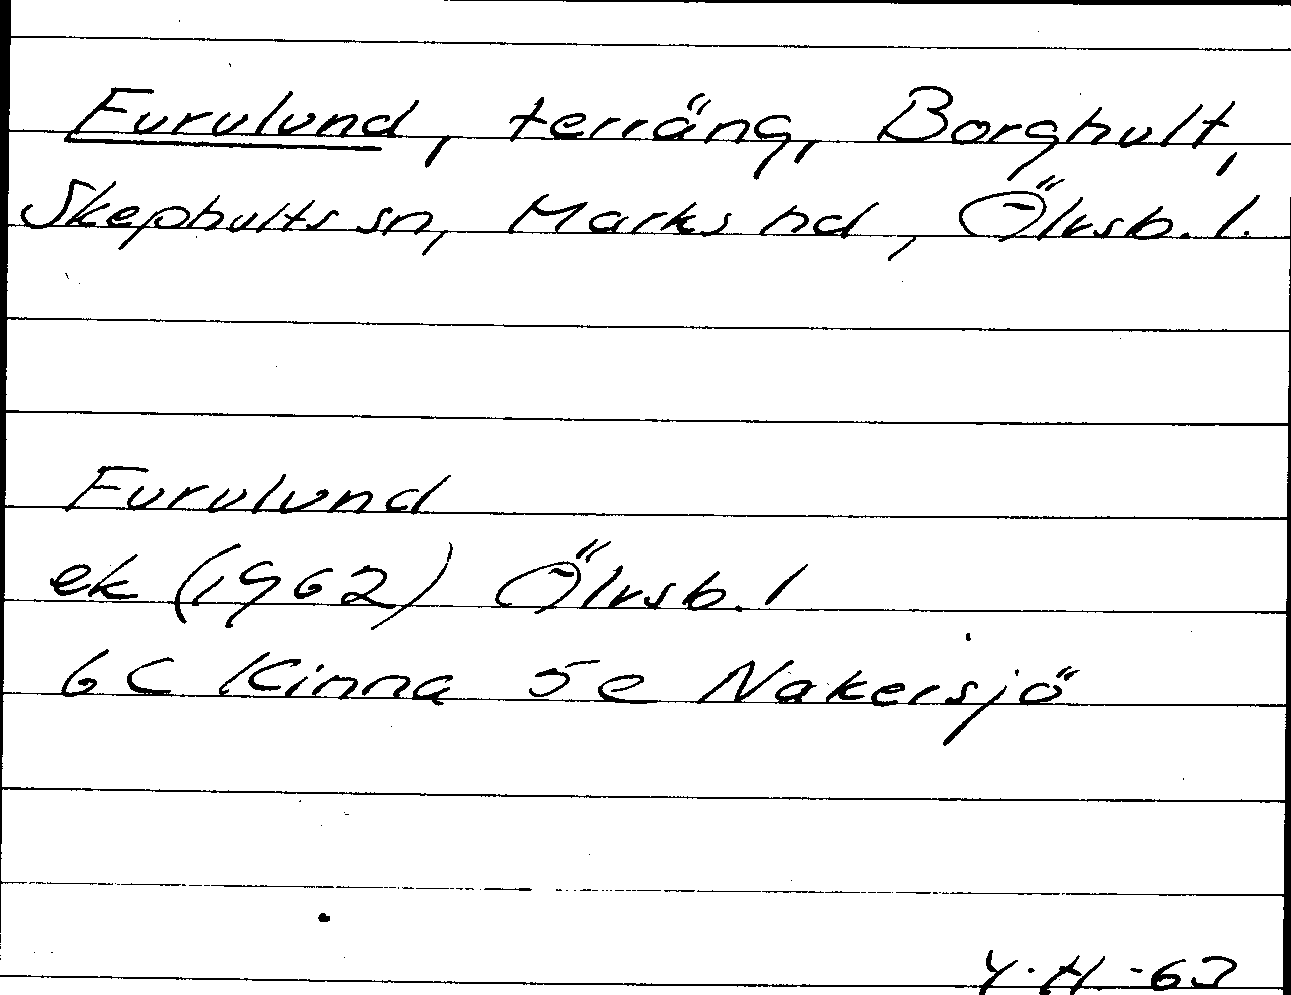 Furulund, terräng, Borghult,
Skephults sn, Marks hd, Älvsb. l.
Furulund
ek (1962) Älvsb. l
6C Kinna 5e Nakersjö
Y. H. -63